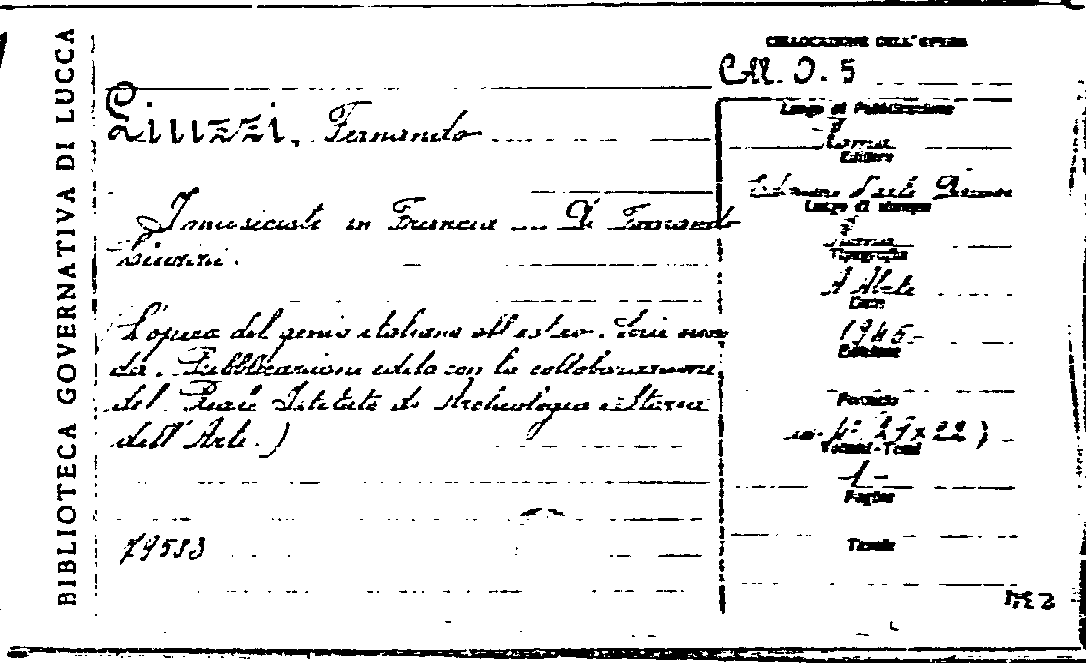 BIBLIOTECA GOVERNATIVA DI LUCCA
COLLOCAZIONE DELL'OPERA
CM. O. 5
Liuzzi, Fernando
I musicisti in Francia ... Di Fernando
Liuzzi.
L'opera del genio italiano all'estero. Serie
da. Pubblicazione edita con la collaborazione
del Reale Istituto di Archeologia e Storia
dell'Arte.)
79533
Luogo di Pubblicazione
Roma
Editore
d'arte
Luogo di stampa
Roma
Tipografia
Data
1945
Edizione
Formato
in-4° 29x22)
Volumi-Tomi
1-
Pagine
Tavole